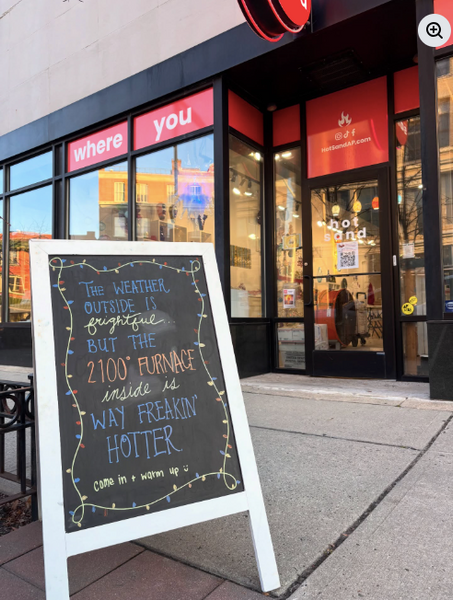 where you
HotSandAP.com
hot
sand
THE WEATHER
OUTSIDE IS
frightful...
BUT THE
2100° FURNACE
inside is
WAY FREAKIN'
HOTTER
come in + warm up :)